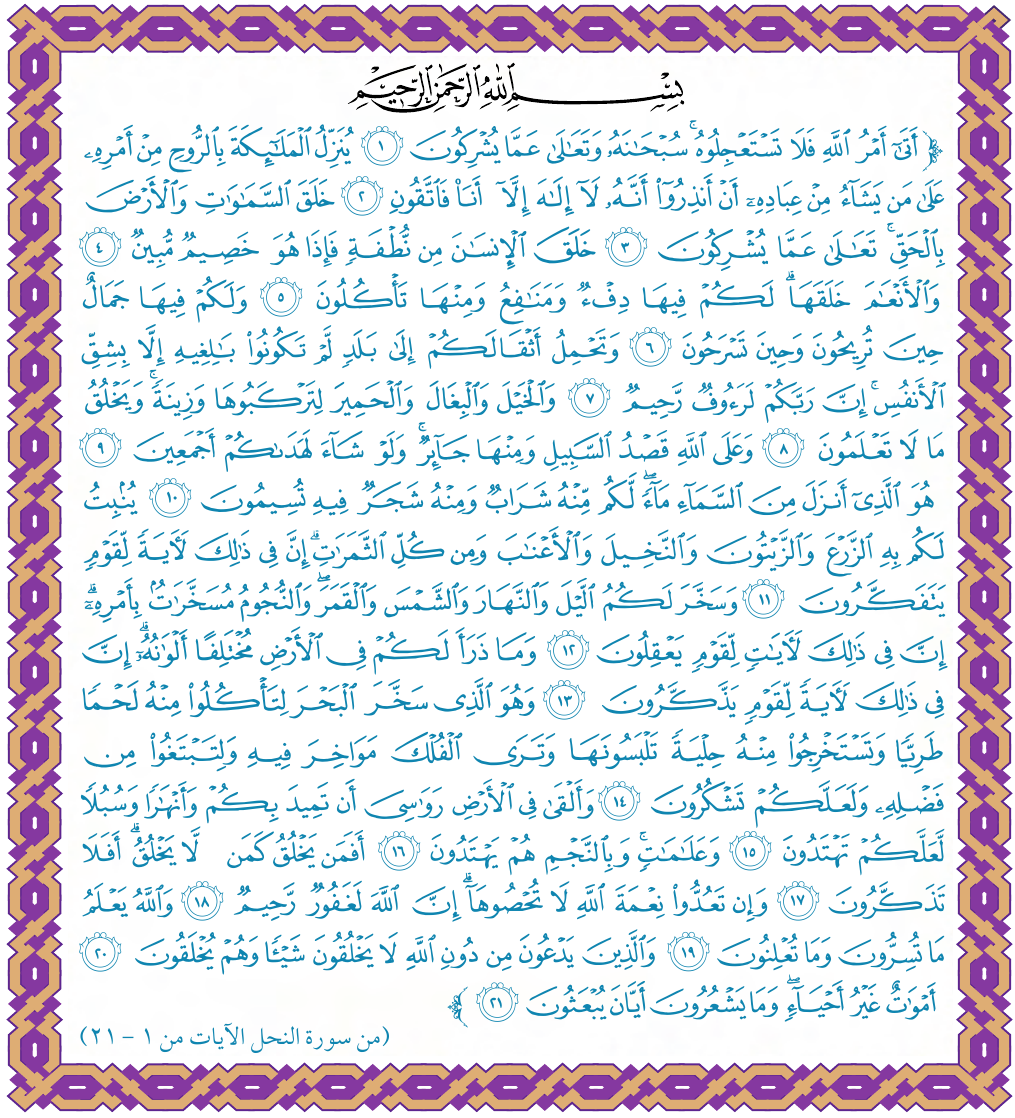 بِسْمِ ٱللَّهِ ٱلرَّحْمَٰنِ ٱلرَّحِيمِ
﴿ أَتَىٰٓ أَمْرُ ٱللَّهِ فَلَا تَسْتَعْجِلُوهُ ۚ سُبْحَٰنَهُۥ وَتَعَٰلَىٰ عَمَّا يُشْرِكُونَ ١ يُنَزِّلُ ٱلْمَلَٰٓئِكَةَ بِٱلرُّوحِ مِنْ أَمْرِهِۦ
عَلَىٰ مَن يَشَآءُ مِنْ عِبَادِهِۦٓ أَنْ أَنذِرُوٓا۟ أَنَّهُۥ لَآ إِلَٰهَ إِلَّآ أَنَا۠ فَٱتَّقُونِ ٢ خَلَقَ ٱلسَّمَٰوَٰتِ وَٱلْأَرْضَ
بِٱلْحَقِّ ۚ تَعَٰلَىٰ عَمَّا يُشْرِكُونَ ٣ خَلَقَ ٱلْإِنسَٰنَ مِن نُّطْفَةٍ فَإِذَا هُوَ خَصِيمٌ مُّبِينٌ ٤
وَٱلْأَنْعَٰمَ خَلَقَهَا ۗ لَكُمْ فِيهَا دِفْءٌ وَمَنَٰفِعُ وَمِنْهَا تَأْكُلُونَ ٥ وَلَكُمْ فِيهَا جَمَالٌ
حِينَ تُرِيحُونَ وَحِينَ تَسْرَحُونَ ٦ وَتَحْمِلُ أَثْقَالَكُمْ إِلَىٰ بَلَدٍ لَّمْ تَكُونُوا۟ بَٰلِغِيهِ إِلَّا بِشِقِّ
ٱلْأَنفُسِ ۚ إِنَّ رَبَّكُمْ لَرَءُوفٌ رَّحِيمٌ ٧ وَٱلْخَيْلَ وَٱلْبِغَالَ وَٱلْحَمِيرَ لِتَرْكَبُوهَا وَزِينَةً ۚ وَيَخْلُقُ
مَا لَا تَعْلَمُونَ ٨ وَعَلَى ٱللَّهِ قَصْدُ ٱلسَّبِيلِ وَمِنْهَا جَآئِرٌ ۚ وَلَوْ شَآءَ لَهَدَىٰكُمْ أَجْمَعِينَ ٩
هُوَ ٱلَّذِىٓ أَنزَلَ مِنَ ٱلسَّمَآءِ مَآءً ۖ لَّكُم مِّنْهُ شَرَابٌ وَمِنْهُ شَجَرٌ فِيهِ تُسِيمُونَ ١٠ يُنۢبِتُ
لَكُم بِهِ ٱلزَّرْعَ وَٱلزَّيْتُونَ وَٱلنَّخِيلَ وَٱلْأَعْنَٰبَ وَمِن كُلِّ ٱلثَّمَرَٰتِ ۗ إِنَّ فِى ذَٰلِكَ لَءَايَةً لِّقَوْمٍ
يَتَفَكَّرُونَ ١١ وَسَخَّرَ لَكُمُ ٱلَّيْلَ وَٱلنَّهَارَ وَٱلشَّمْسَ وَٱلْقَمَرَ ۖ وَٱلنُّجُومُ مُسَخَّرَٰتٌۢ بِأَمْرِهِۦٓ ۗ
إِنَّ فِى ذَٰلِكَ لَءَايَٰتٍ لِّقَوْمٍ يَعْقِلُونَ ١٢ وَمَا ذَرَأَ لَكُمْ فِى ٱلْأَرْضِ مُخْتَلِفًا أَلْوَٰنُهُۥٓ ۗ إِنَّ
فِى ذَٰلِكَ لَءَايَةً لِّقَوْمٍ يَذَّكَّرُونَ ١٣ وَهُوَ ٱلَّذِى سَخَّرَ ٱلْبَحْرَ لِتَأْكُلُوا۟ مِنْهُ لَحْمًا
طَرِيًّا وَتَسْتَخْرِجُوا۟ مِنْهُ حِلْيَةً تَلْبَسُونَهَا وَتَرَى ٱلْفُلْكَ مَوَاخِرَ فِيهِ وَلِتَبْتَغُوا۟ مِن
فَضْلِهِۦ وَلَعَلَّكُمْ تَشْكُرُونَ ١٤ وَأَلْقَىٰ فِى ٱلْأَرْضِ رَوَٰسِىَ أَن تَمِيدَ بِكُمْ وَأَنْهَٰرًا وَسُبُلًا
لَّعَلَّكُمْ تَهْتَدُونَ ١٥ وَعَلَٰمَٰتٍ ۚ وَبِٱلنَّجْمِ هُمْ يَهْتَدُونَ ١٦ أَفَمَن يَخْلُقُ كَمَن لَّا يَخْلُقُ ۗ أَفَلَا
تَذَكَّرُونَ ١٧ وَإِن تَعُدُّوا۟ نِعْمَةَ ٱللَّهِ لَا تُحْصُوهَآ ۗ إِنَّ ٱللَّهَ لَغَفُورٌ رَّحِيمٌ ١٨ وَٱللَّهُ يَعْلَمُ
مَا تُسِرُّونَ وَمَا تُعْلِنُونَ ١٩ وَٱلَّذِينَ يَدْعُونَ مِن دُونِ ٱللَّهِ لَا يَخْلُقُونَ شَيْـًٔا وَهُمْ يُخْلَقُونَ ٢٠
أَمْوَٰتٌ غَيْرُ أَحْيَآءٍ ۖ وَمَا يَشْعُرُونَ أَيَّانَ يُبْعَثُونَ ٢١ ﴾
(من سورة النحل الآيات من ١ – ٢١)